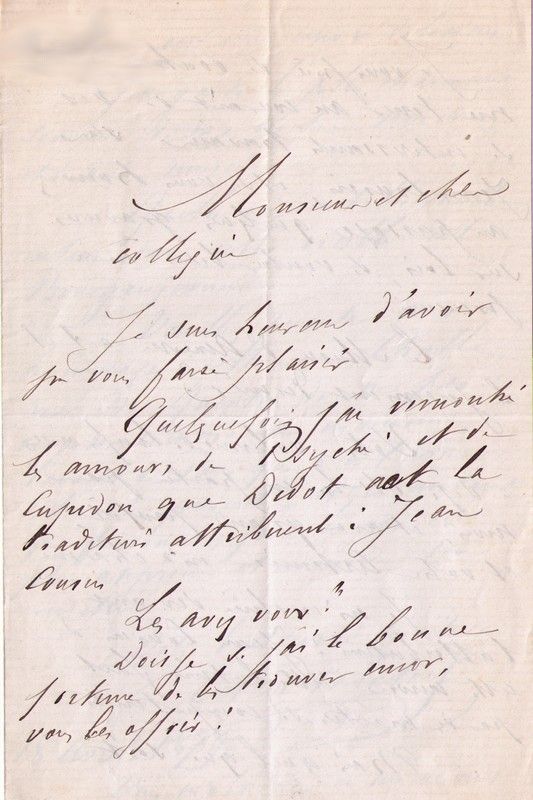 Monsieur et cher
collègue
Je suis heureux d'avoir
pu vous faire plaisir
Quelquefois j'ai rencontré
les amours de Psyché et de
Cupidon que Didot et la
tradition attribuent à Jean
Cousin
Les avez vous?
Dois je si j'ai le bonne
fortune de les trouver encor,
vous les offrir?